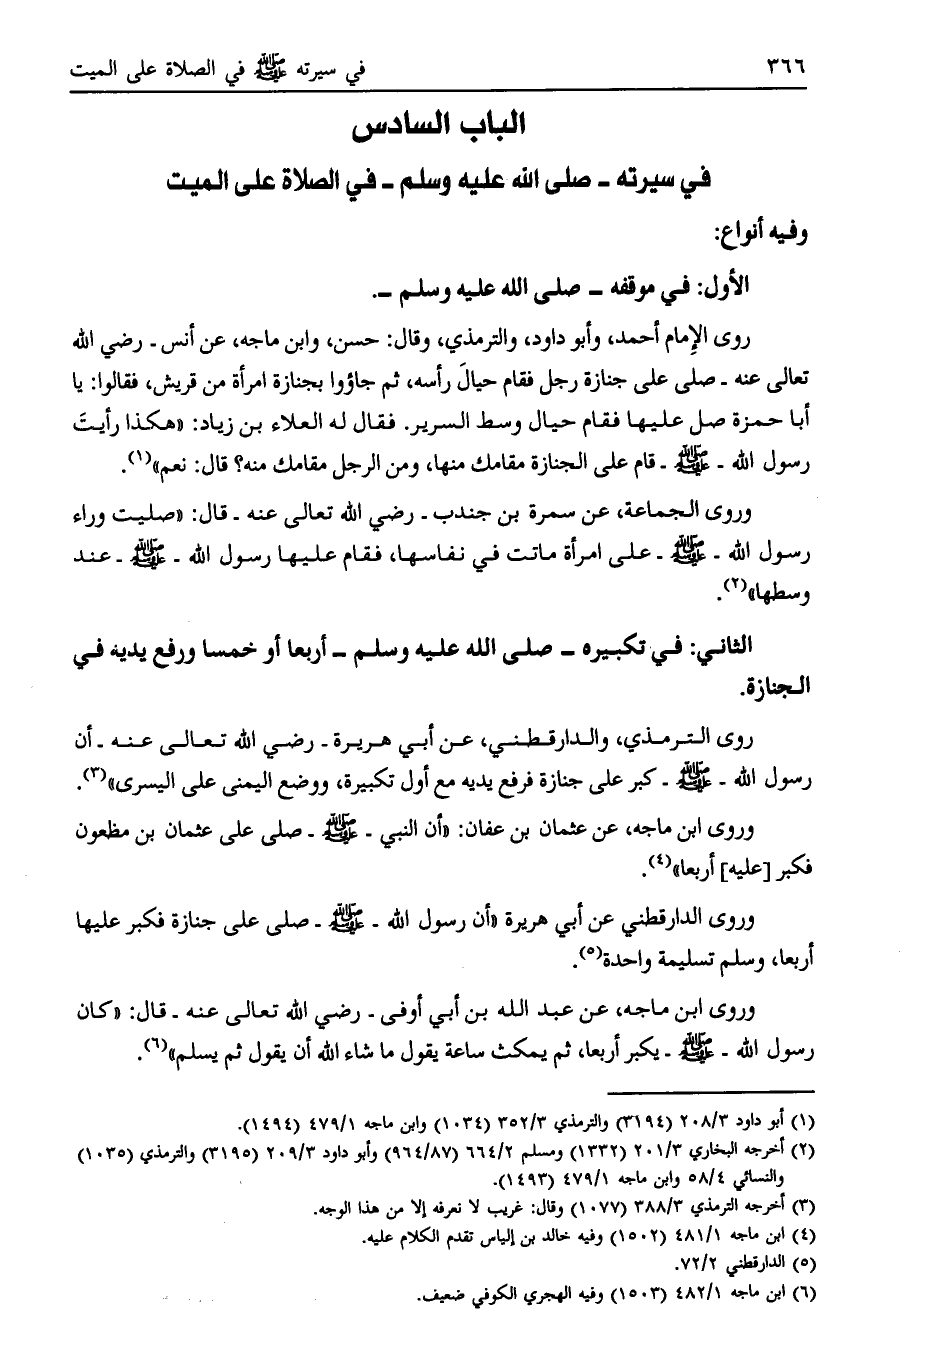 ٣٦٦ في سيرته ﷺ في الصلاة على الميت
الباب السادس
في سيرته ـ صلى الله عليه وسلم ـ في الصلاة على الميت
وفيه أنواع:
الأول: في موقفه ـ صلى الله عليه وسلم ـ.
روى الإمام أحمد، وأبو داود، والترمذي، وقال: حسن، وابن ماجه، عن أنس ـ رضي الله
تعالى عنه ـ صلى على جنازة رجل فقام حيالَ رأسه، ثم جاؤوا بجنازة امرأة من قريش، فقالوا: يا
أبا حمزة صل عليها فقام حيال وسط السرير. فقال له العلاء بن زياد: «هكذا رأيتَ
رسول الله ـ ﷺ ـ قام على الجنازة مقامك منها، ومن الرجل مقامك منه؟ قال: نعم»(١).
وروى الجماعة، عن سمرة بن جندب ـ رضي الله تعالى عنه ـ قال: «صليت وراء
رسول الله ـ ﷺ ـ على امرأة ماتت في نفاسها، فقام عليها رسول الله ـ ﷺ ـ عند
وسطها»(٢).
الثاني: في تكبيره ـ صلى الله عليه وسلم ـ أربعا أو خمسا ورفع يديه في
الجنازة.
روى الترمذي، والدارقطني، عن أبي هريرة ـ رضي الله تعالى عنه ـ أن
رسول الله ـ ﷺ ـ كبر على جنازة فرفع يديه مع أول تكبيرة، ووضع اليمنى على اليسرى»(٣).
وروى ابن ماجه، عن عثمان بن عفان: «أن النبي ـ ﷺ ـ صلى على عثمان بن مظعون
فكبر [عليه] أربعا»(٤).
وروى الدارقطني عن أبي هريرة «أن رسول الله ـ ﷺ ـ صلى على جنازة فكبر عليها
أربعا، وسلم تسليمة واحدة(٥).
وروى ابن ماجه، عن عبد الله بن أبي أوفى ـ رضي الله تعالى عنه ـ قال: «كان
رسول الله ـ ﷺ ـ يكبر أربعا، ثم يمكث ساعة يقول ما شاء الله أن يقول ثم يسلم»(٦).
(١) أبو داود ٢٠٨/٣ (٣١٩٤) والترمذي ٣٥٢/٣ (١٠٣٤) وابن ماجه ٤٧٩/١ (١٤٩٤).
(٢) أخرجه البخاري ٢٠١/٣ (١٣٣٢) ومسلم ٦٦٤/٢ (٩٦٤/٨٧) وأبو داود ٢٠٩/٣ (٣١٩٥) والترمذي (١٠٣٥)
والنسائي ٥٨/٤ وابن ماجه ٤٧٩/١ (١٤٩٣).
(٣) أخرجه الترمذي ٣٨٨/٣ (١٠٧٧) وقال: غريب لا نعرفه إلا من هذا الوجه.
(٤) ابن ماجه ٤٨١/١ (١٥٠٢) وفيه خالد بن إلياس تقدم الكلام عليه.
(٥) الدارقطني ٧٢/٢.
(٦) ابن ماجه ٤٨٢/١ (١٥٠٣) وفيه الهجري الكوفي ضعيف.